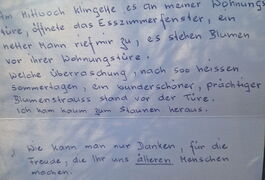 Am Mittwoch klingelte es an meiner Wohnungs
türe, öffnete das Esszimmerfenster, ein
netter Mann rief mir zu, es stehen Blumen
vor ihrer Wohnungstüre.
Welche Überraschung, nach soo heissen
Sommertagen, ein wunderschöner, prächtiger
Blumenstrauss stand vor der Türe.
Ich kam kaum zum Staunen heraus.
Wie kann man nur Danken, für die
Freude, die Ihr uns älteren Menschen
machen.